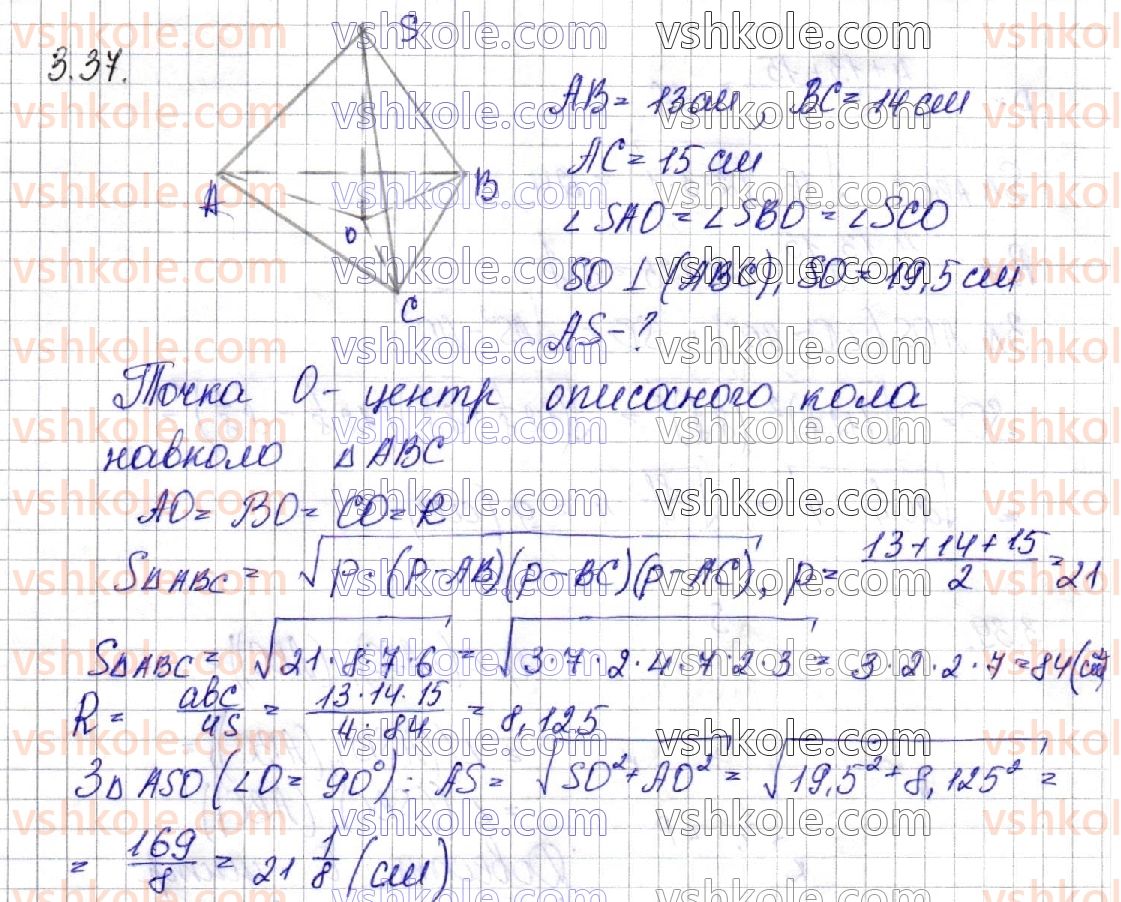 3.37.
S
A
B
O
C
AB = 13 см, BC = 14 см
AC = 15 см
∠SAO = ∠SBO = ∠SCO
SO ⊥ (ABC), SO = 19,5 см
AS - ?
Точка O - центр описаного кола
навколо △ABC
AO = BO = CO = R
S△ABC = √(p·(p-AB)(p-BC)(p-AC)), p = (13+14+15)/2 = 21
S△ABC = √(21·8·7·6) = √(3·7·2·4·7·2·3) = 3·2·2·7 = 84 (см²)
R = abc/4S = (13·14·15)/(4·84) = 8,125
З △ASO (∠O = 90°): AS = √(SO² + AO²) = √(19,5² + 8,125²) =
= 169/8 = 21 1/8 (см)
vshkole.com